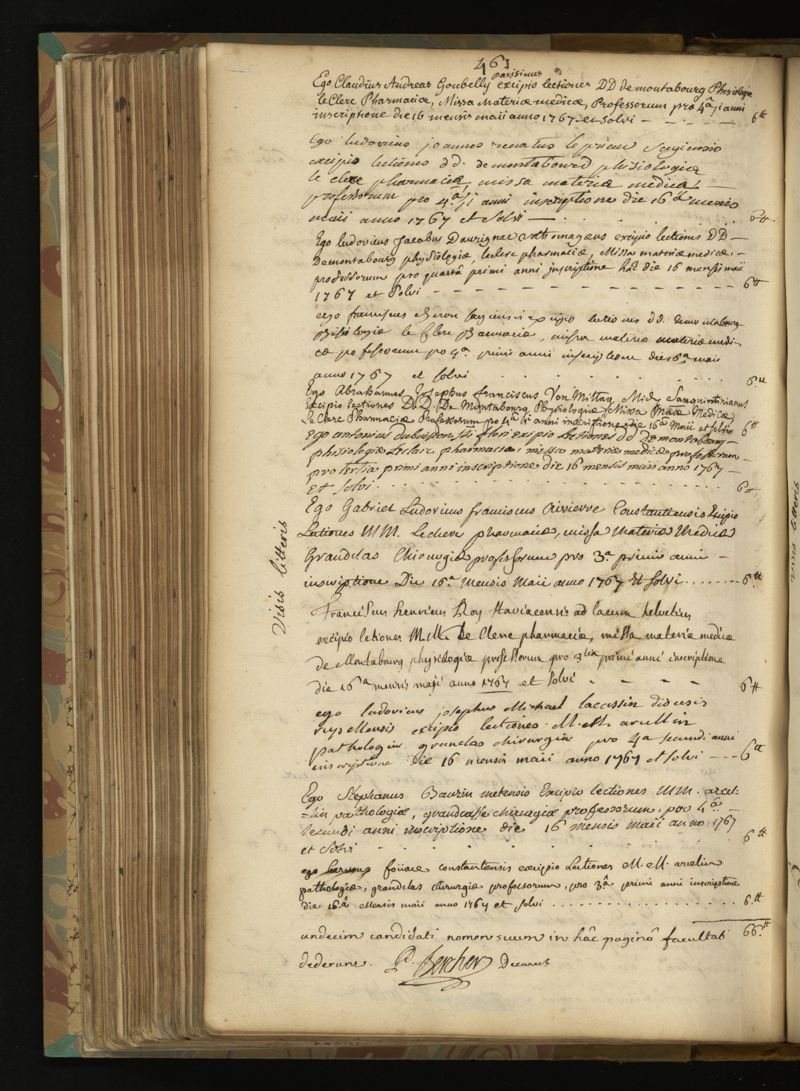 461
parisinus
Ego Claudius Andreas Goubelly excipio lectiones DD demontabourg Physiologiæ
leClerc Pharmaciæ, Missa Materiæ medicæ, Professorum pro 4â j anni
inscriptione die 16 mensis maii anno 1767 et solvi 6tt
Ego ludovicus joannes renatus le prieur sagiensis
excipio lectiones dd. de montabourg phisiologiæ
le clerc pharmaciæ, missa materiæ medicæ
professorum pro 4.a j anni inscriptione die 16â mensis
maii anno 1767 et solvi 6tt.
Ego ludovicus Jacobus Dauvignac excipio lectiones DD
Demontabourg physiologiæ, leclerc pharmaciæ, Missa materiæ medicæ,
professorum pro quartâ primi anni jnscriptione hâc die 16 mensis maii
1767 et Solvi 6tt
ego franciscus cheron sagiensis excipio lectiones dd. demontabourg
phisiologiæ le Clerc pharmaciæ, missa materiæ medi
cæ professorum pro 4a. primi anni inscriptione die 16a maii
anno 1767 et solvi 6tt
Ego Abrahamus Josephus franciscus Von Mittag Midy Sanquintinianus
Excipio lectiones D.D. De Montabourg Physiologiæ Missa Matæ Medicæ
Le Clerc Pharmaciæ Professorum pro 4a 1i anni inscriptione die 16a Maii et solvi 6tt
Ego antonius dubuisson sti flori excipio lectiones dd Demontabourg
phisiologiæ Leclerc pharmaciæ, missa materiæ medicæ professorum
pro tertiâ primi anni inscriptione die 16 mensis maii anno 1767
et solvi 6tt
Ego Gabriel Ludovicus franciscus Rivierre Constantiensis Excipio
Lectiones MM. Leclerc pharmaciæ, missa Materiæ Medicæ
Grandclas Chirurgiæ professorum pro 3a primi anni
inscriptione Die 16.a Mensis Maii anno 1767 Et solvi 6.tt
Visis litteris
Franciscus henricus Roy Staviacensis ad lacum helvetius
excipio lectiones M.M. De Clerc pharmaciæ, missa materiæ medicæ
de Montabourg physiologiæ professorum pro 3tia primi anni inscriptione
die 16a mensis maji anno 1767 et solvi 6tt
ego ludovicus josephus Michael laccissin
excipio lectiones M.M. arcellin
pathologiæ grandclas chirurgiæ pro 4a secundi anni
inscriptione die 16 mensis maii anno 1767 et solvi 6tt
Ego Stephanus Bauzin metensis Excipio lectiones M.M. arcel
=lin pathologiæ, grandclasse chirurgiæ professorum, pro 4â
Secundi anni inscriptione die 16 mensis maii anno 1767
et solvi 6tt
ego foüace constantiensis excipio Lectiones M.M. arcelin
pathologiæ, grandclas chirurgiæ professorum, pro 3â primi anni inscriptione
die 16.â Mensis maii anno 1767 et solvi 6.tt
undecim candidati nomen suum in hâc paginâ facultati 66.tt
dederunt. Bercher Decanus
visis litteris